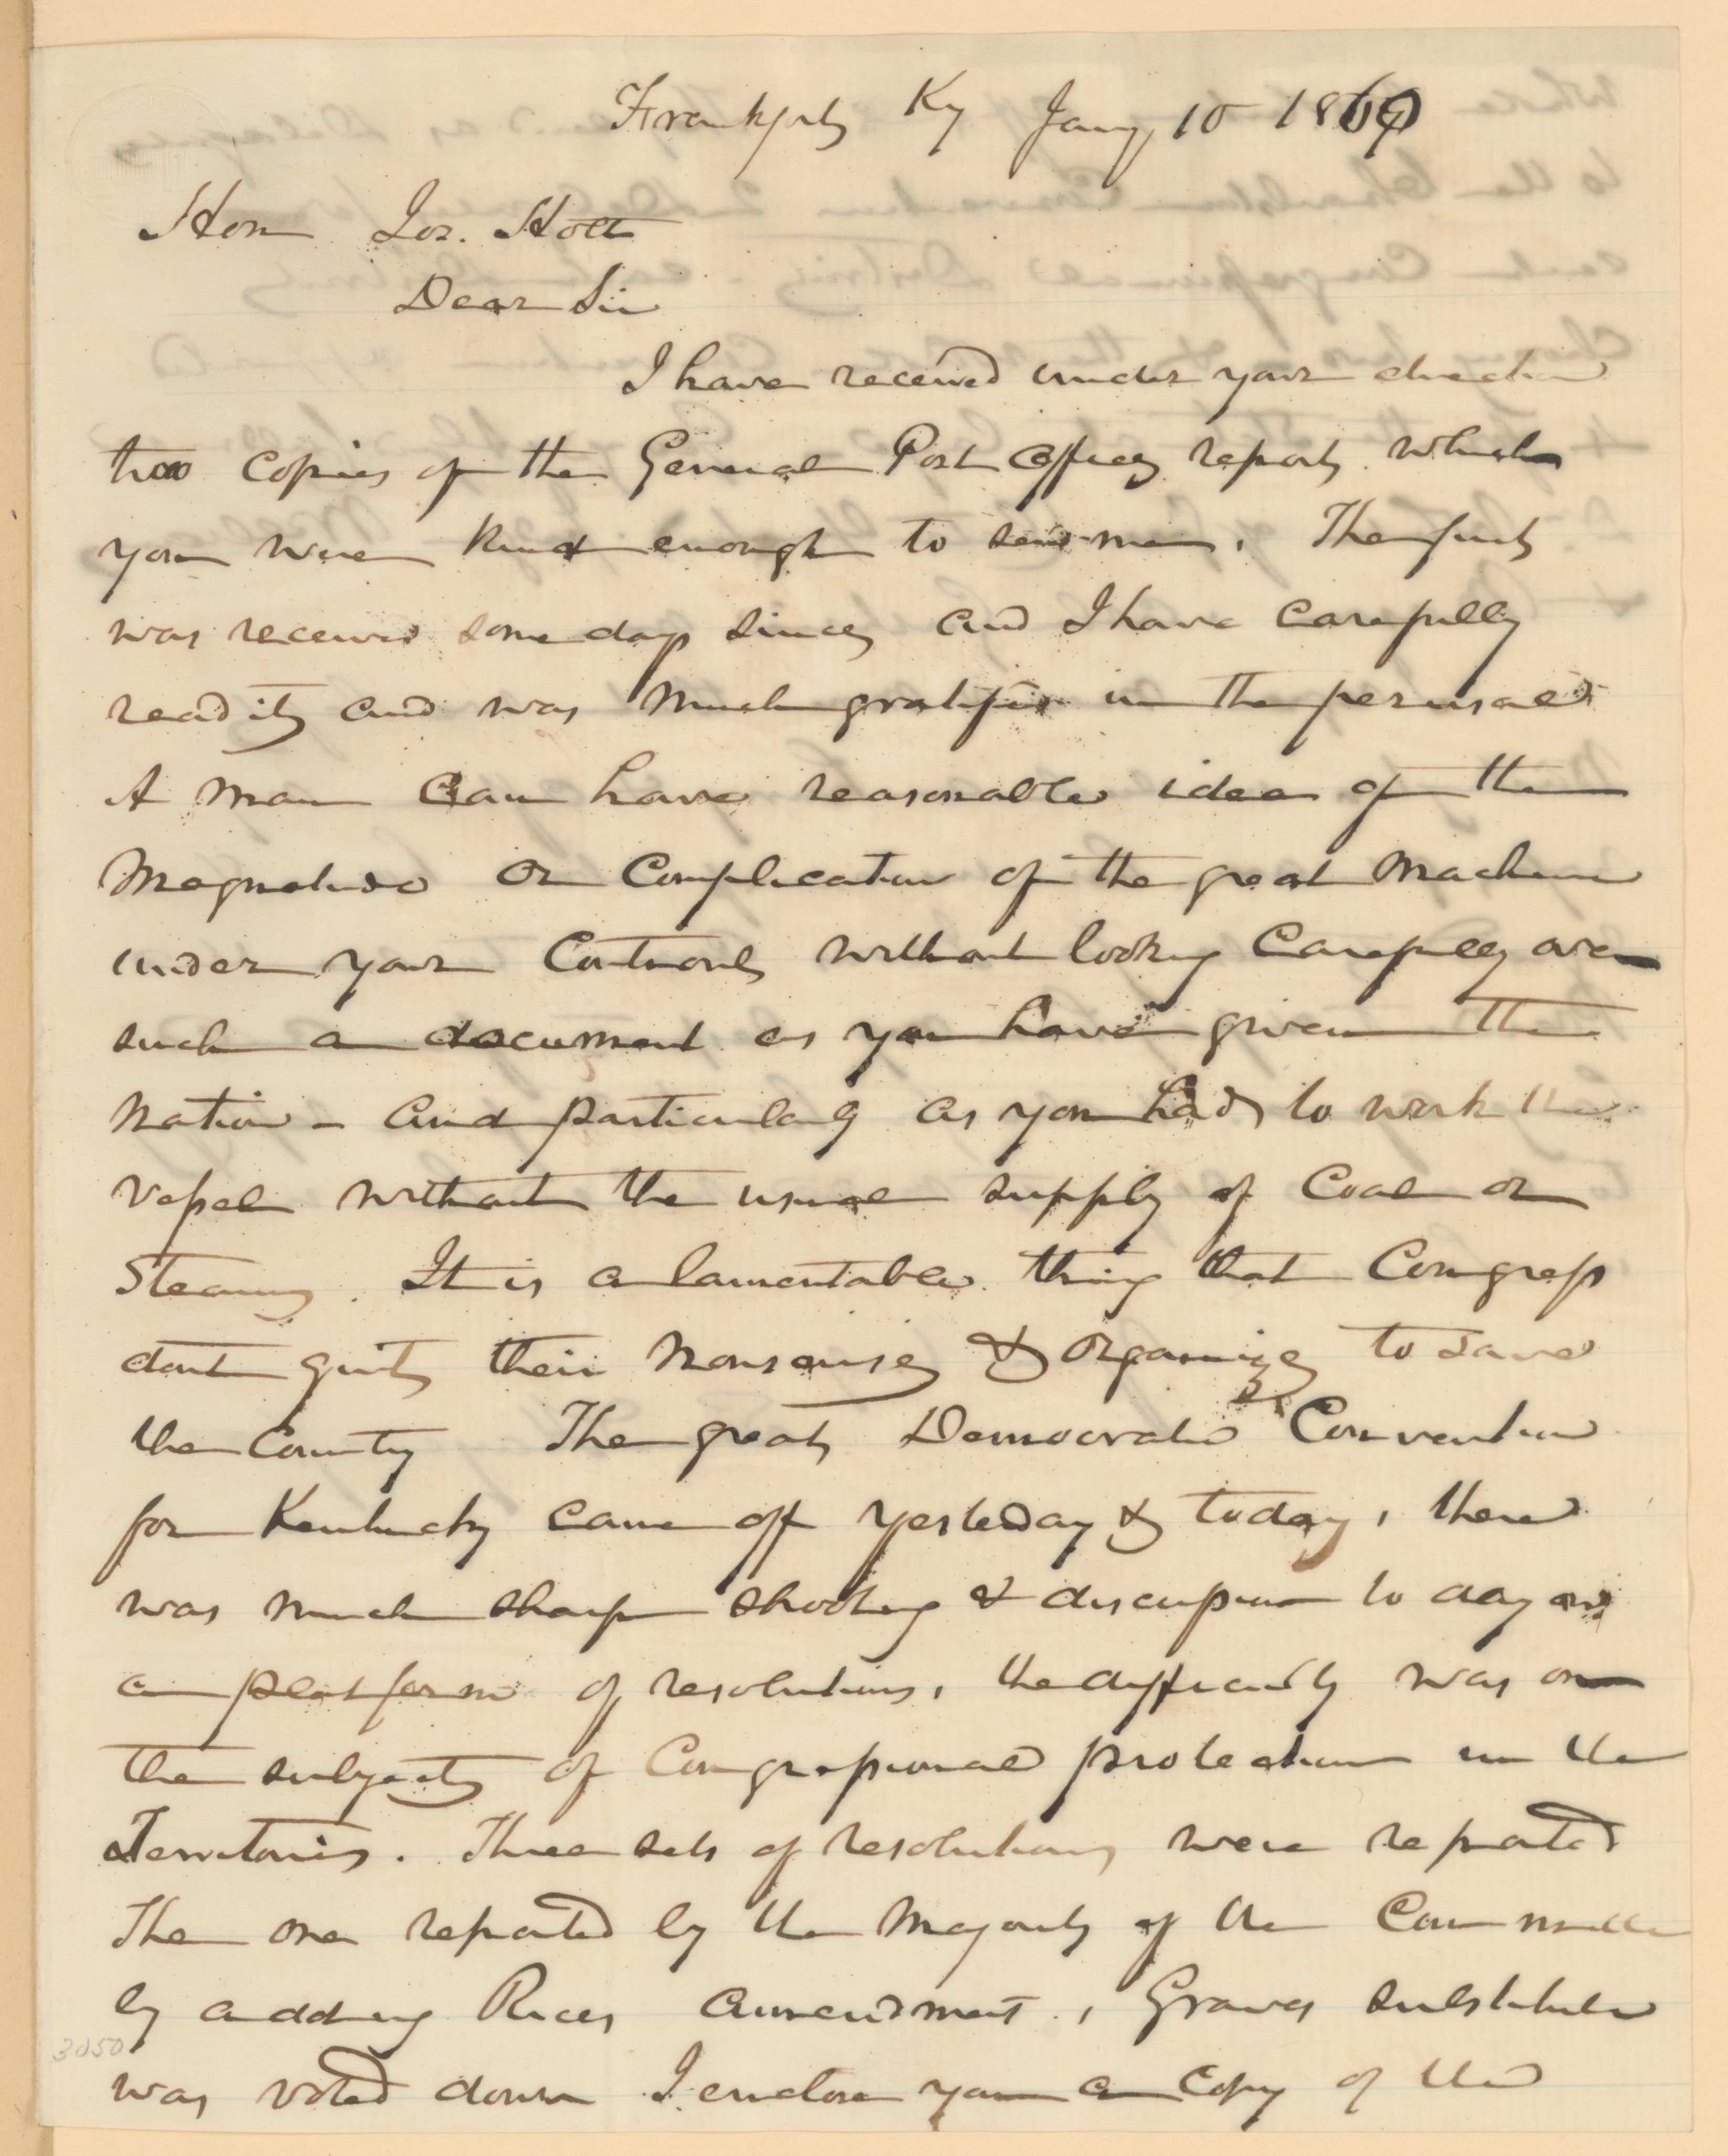 Frankfort Ky Jany 10 1860
Hon Jos. Holt
Dear Sir
I have received under your direction
two copies of the General Post office report which
you were kind enough to send me. The first
was received some days since and I have carefully
read it and was much gratified in the perusal
A man can have reasonable idea of the
Magnitude or Complication of the great Machine
under your Controul without looking Carefully over
such a document as you have given the
Nation - and particularly as you had to work the
vessel without the usual supply of Coal or
Steam. It is a lamentable thing that Congress
dont quit their Nonsense & Organize to save
the County The great Democratic Convention
for Kentucky came off yesterday & today, there
was much sharp shooting & discussion to day on
a platform of resolutions, the difficulty was on
the subject of Congressional protection in the
Territories. Three sets of resolutions were reported
The one reported by the Majority of the Committee
by adding Rices Amendment, Graves substitute
was voted down I enclose you a Copy of the
3050